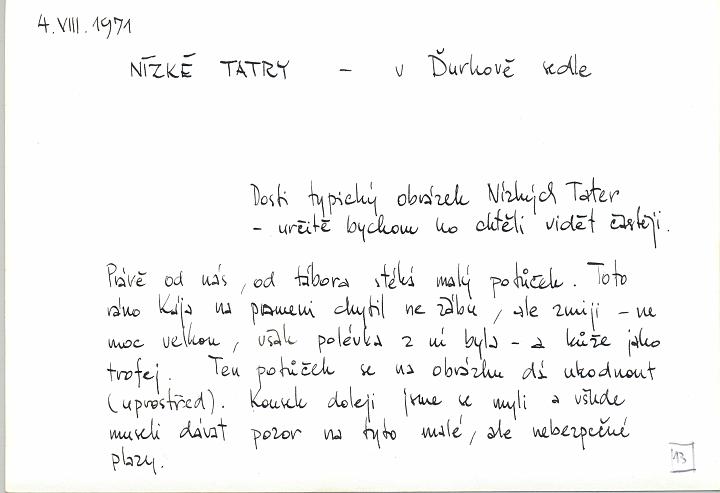 4.VIII.1971
NÍZKÉ TATRY – v Ďurkově sedle
Dosti typický obrázek Nízkých Tater
- určitě bychom ho chtěli vidět častěji.
Právě od nás, od tábora stéká malý potůček. Toto
ráno Kája na prameni chytil ne žábu, ale zmiji – ne
moc velkou, však polévka z ní byla – a kůže jako
trofej. Ten potůček se na obrázku dá uhodnout
(uprostřed). Kousek doleji jsme se myli a všude
museli dávat pozor na tyto malé, ale nebezpečné
plazy.
13